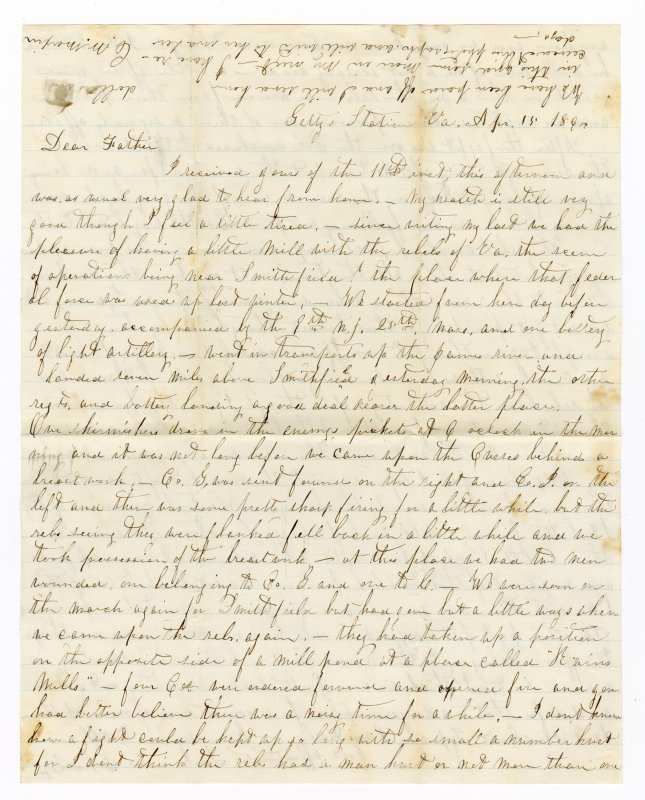 We have been paid off and I will send home
in this a
dollar
received the photograph and will write to her in a few
days.
Getty's Station Va. Apr. 15 186
Dear Father
I received your of the 11th inst. this afternoon and
was as usual very glad to hear from home. — My health is still very
good though I feel a little tired. — since writing my last we had the
pleasure of having a little Mill with the rebels of Va, the scene
of operations being near Smithfield the place where that Feder
al force was used up last winter. — We started from here day before
yesterday, accompanied by the 9th N.J. 25th Mass. and one battery
of light artillery. — went in transports up the James river and
landed seven miles above Smithfield yesterday morning, the other
regts. and battery landing a good deal nearer the latter place.
Our skirmishers drove in the enemys pickets at 6 oclock in the mor
ning and it was not long before we came upon the Cusses behind a
breast work. — Co. G was sent forward on the right and Co. I. on the
left and there was some pretty sharp firing for a little while but the
rebs seeing they were flanked fell back in a little while and we
took possession of the breastwork — at this place we had two men
wounded one belonging to Co. G. and one to C. — We were soon on
the march again for Smithfield but had gone but a little ways when
we came upon the rebs. again. — they had taken up a position
on the opposite side of a mill pond at a place called "Rains
Mills." — four Cos were ordered forward and opened fire and you
had better believe there was a noisy time for a while. — I dont know
how a fight could be kept up so long with so small a number hurt
for I dont think the rebs had a man hurt or not more than one